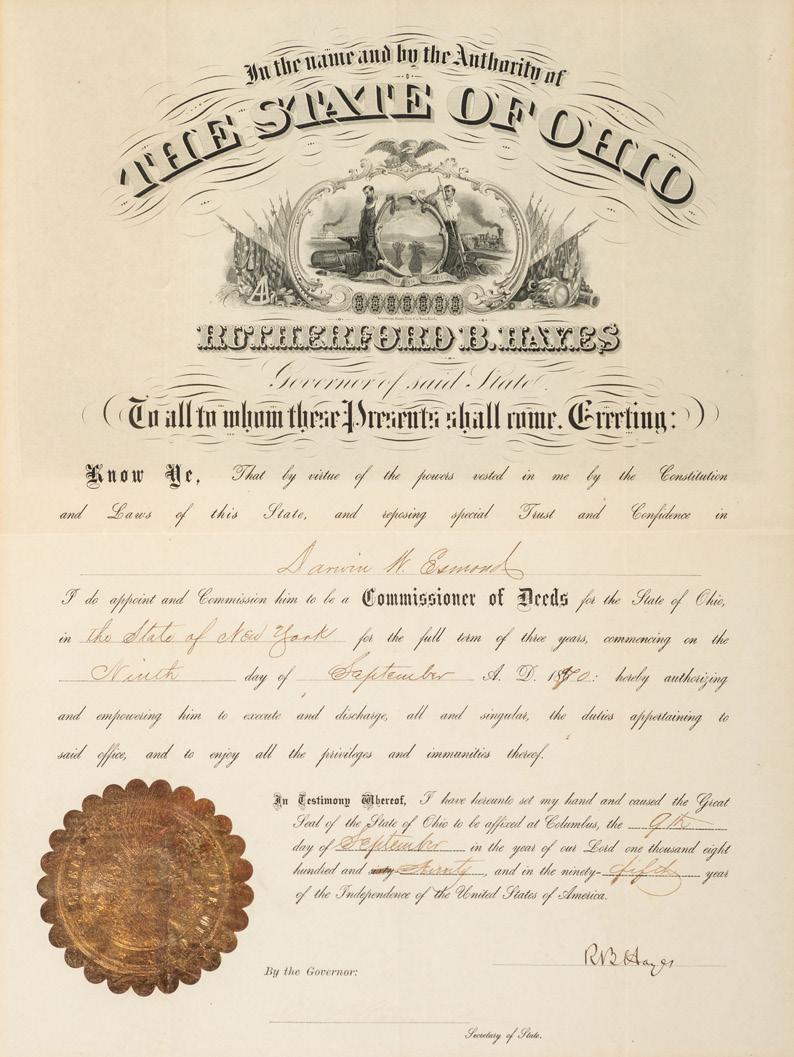 In the name and by the Authority of
THE STATE OF OHIO
RUTHERFORD B. HAYES
Governor of said State.
To all to whom these Presents shall come, Greeting:
Know Ye, That by virtue of the powers vested in me by the Constitution
and Laws of this State, and reposing special Trust and Confidence in
Darwin W. Esmond
I do appoint and Commission him to be a Commissioner of Deeds for the State of Ohio,
in the State of New York for the full term of three years, commencing on the
Ninth day of September A. D. 1870: hereby authorizing
and empowering him to execute and discharge, all and singular, the duties appertaining to
said office, and to enjoy all the privileges and immunities thereof.
In Testimony Whereof, I have hereunto set my hand and caused the Great
Seal of the State of Ohio to be affixed at Columbus, the 9th
day of September in the year of our Lord one thousand eight
hundred and sixty Seventy, and in the ninety-fifth year
of the Independence of the United States of America.
R B Hayes
By the Governor:
Secretary of State.